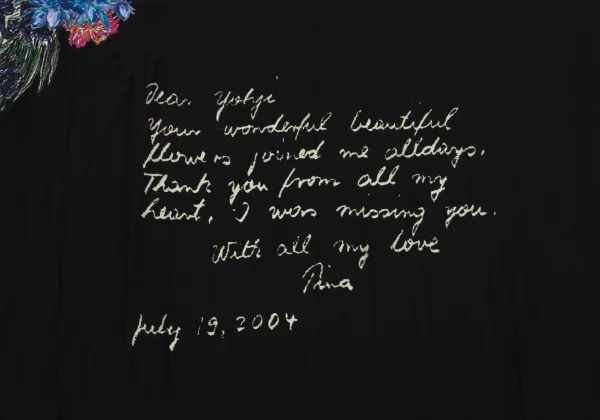 Dear Yohji
Your wonderful beautiful
flowers joined me alldays.
Thank you from all my
heart, I was missing you.
With all my love
Pina
July 19, 2004